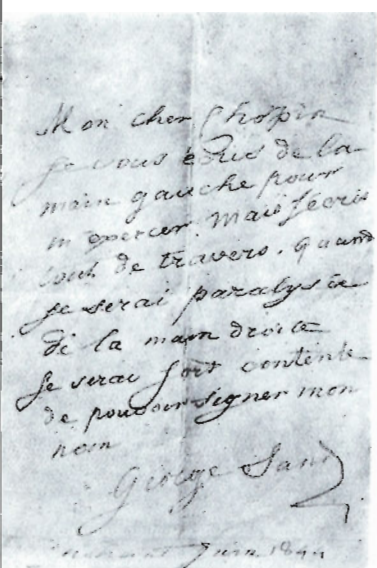 Mon cher Chopin
je vous écris de la
main gauche pour
m'exercer. Mais j'écris
tout de travers. quand
je serai paralysée
de la main droite
je serai fort contente
de pouvoir signer mon
nom
George Sand
Juin 1844